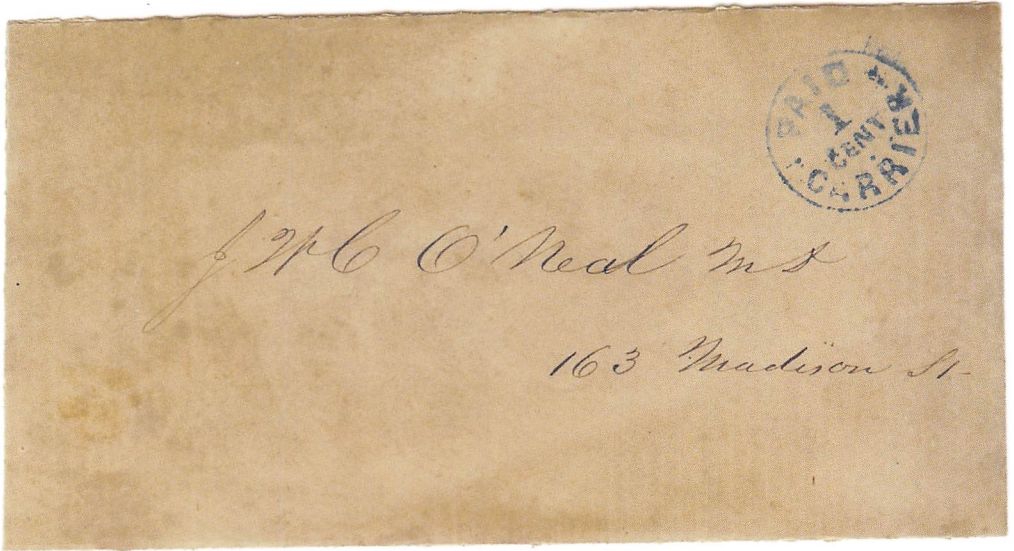 PAID
1
CENT.
CARRIER
J. W. C. O'Neal M D
163 Madison St